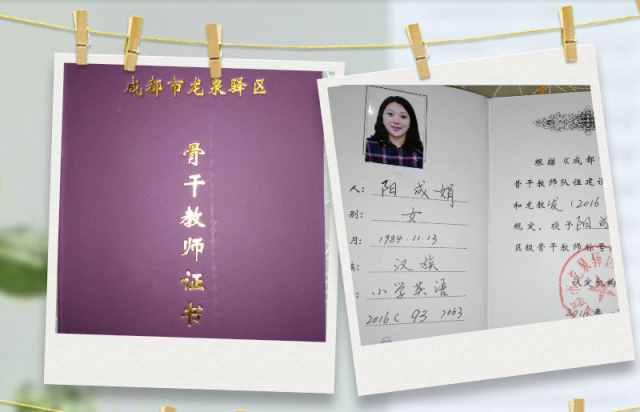 成都市龙泉驿区
骨干教师证书
人: 阳成娟
别: 女
月: 1984.11.13
汉族
: 小学英语
2016( 93 2063
根据《成都
骨干教师队伍建设
和龙教发(2016
规定,授予阳成
区级骨干教师称号
认定机构
2016年